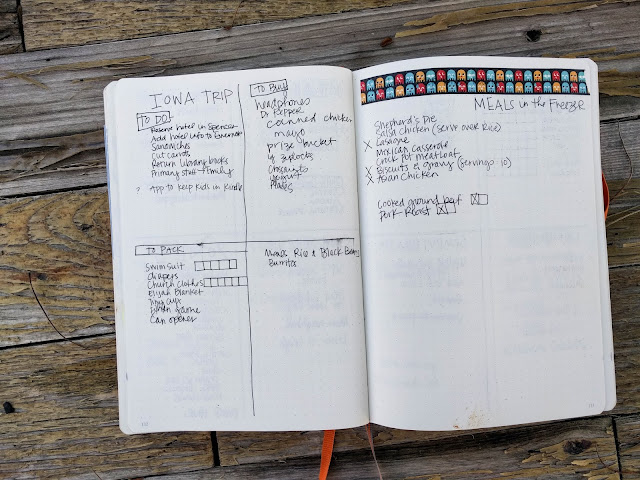 IOWA TRIP
TO DO
Reserve hotel in Spencer
Add hotel info to
Sandwiches
Cut carrots
Return library books
Primary stuff + family
? App to keep kids in Kindle
TO BUY
headphones
Dr Pepper
canned chicken
mayo
prize bucket
ziplocks
yogurt
Plates
TO PACK
Swimsuit
diapers
Church clothes
Elijah Blanket
game
Can opener
Meals Rice & Black Beans
Burritos
MEALS in the Freezer
Shepherd's Pie
Salsa Chicken (serve over Rice)
X Lasagne
Mexican Casserole
Crock Pot meatloaf
X Biscuits & gravy (servings 10)
X Asian Chicken
Cooked ground beef
Pork Roast